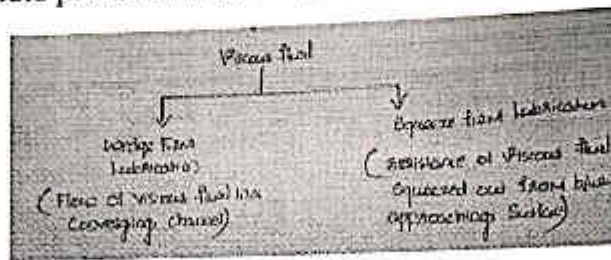 Viscous fluid
Wedge film
lubrication
(Flow of viscous fluid in a
Converging channel)
Squeeze film lubrication
(resistance of viscous fluid
squeezed out from b/w
approaching Surface)